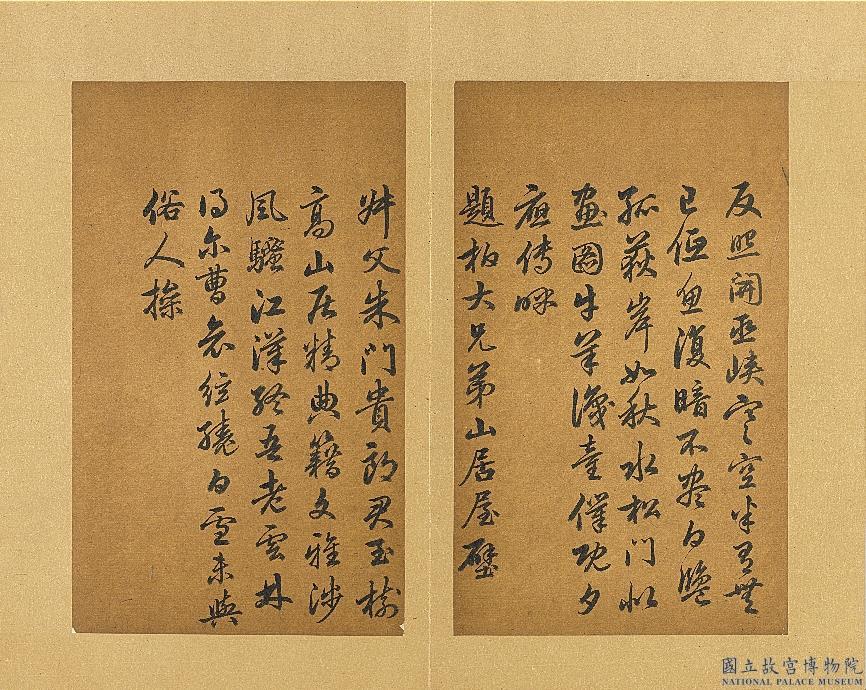 反照開巫峽寒空半有無
已低魚復暗不盡白鹽
孤荻岸如秋水松門似
畫圖牛羊識童僕既夕
應傳呼
題柏大兄弟山居屋壁
叔父朱門貴郎君玉樹
高山居精典籍文雅涉
風騷江漢終吾老雲林
得尔曹哀絃繞白雪未與
俗人操
國立故宮博物院
NATIONAL PALACE MUSEUM